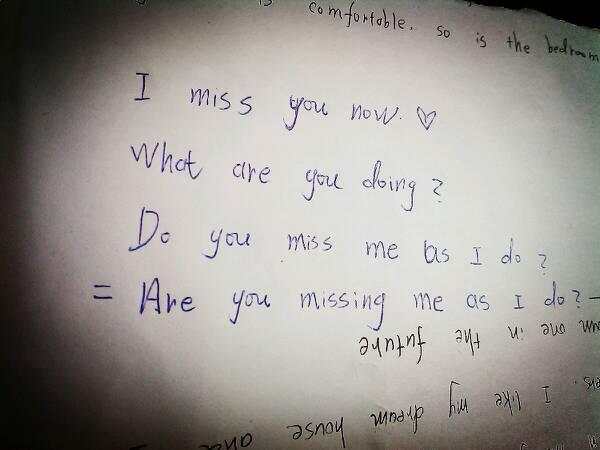 is comfortable. so is the bedroom
I miss you now. ♡
What are you doing?
Do you miss me as I do?
= Are you missing me as I do? –
one in the future
I like my dream house